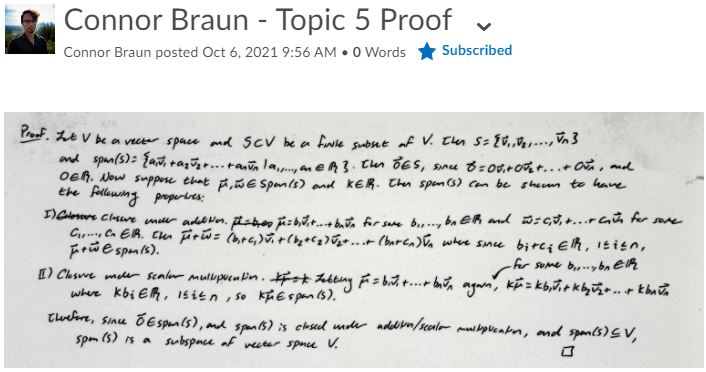 Connor Braun - Topic 5 Proof
Connor Braun posted Oct 6, 2021 9:56 AM • 0 Words Subscribed
Proof. Let V be a vector space and S⊂V be a finite subset of V. Then S={v⃗₁,v⃗₂,...,v⃗ₙ}
and span(S)={a₁v⃗₁+a₂v⃗₂+...+aₙv⃗ₙ|a₁,...,aₙ∈ℝ}. Then 0⃗∈S, since 0⃗=0v⃗₁+0v⃗₂+...+0v⃗ₙ, and
0∈ℝ. Now suppose that μ⃗,w⃗∈span(S) and k∈ℝ. Then span(S) can be shown to have
the following properties:
I) Closure under addition. μ⃗=b₁v⃗₁+...+bₙv⃗ₙ for some b₁,...,bₙ∈ℝ and w⃗=c₁v⃗₁+...+cₙv⃗ₙ for some
c₁,...,cₙ∈ℝ. Then μ⃗+w⃗=(b₁+c₁)v⃗₁+(b₂+c₂)v⃗₂+...+(bₙ+cₙ)v⃗ₙ where since bᵢ+cᵢ∈ℝ, 1≤i≤n,
μ⃗+w⃗∈span(S).
for some b₁,...,bₙ∈ℝ
II) Closure under scalar multiplication. Letting μ⃗=b₁v⃗₁+...+bₙv⃗ₙ again, kμ⃗=kb₁v⃗₁+kb₂v⃗₂+...+kbₙv⃗ₙ
where kbᵢ∈ℝ, 1≤i≤n, so kμ⃗∈span(S).
Therefore, since 0⃗∈span(S), and span(S) is closed under addition/scalar multiplication, and span(S)⊆V,
span(S) is a subspace of vector space V.
□